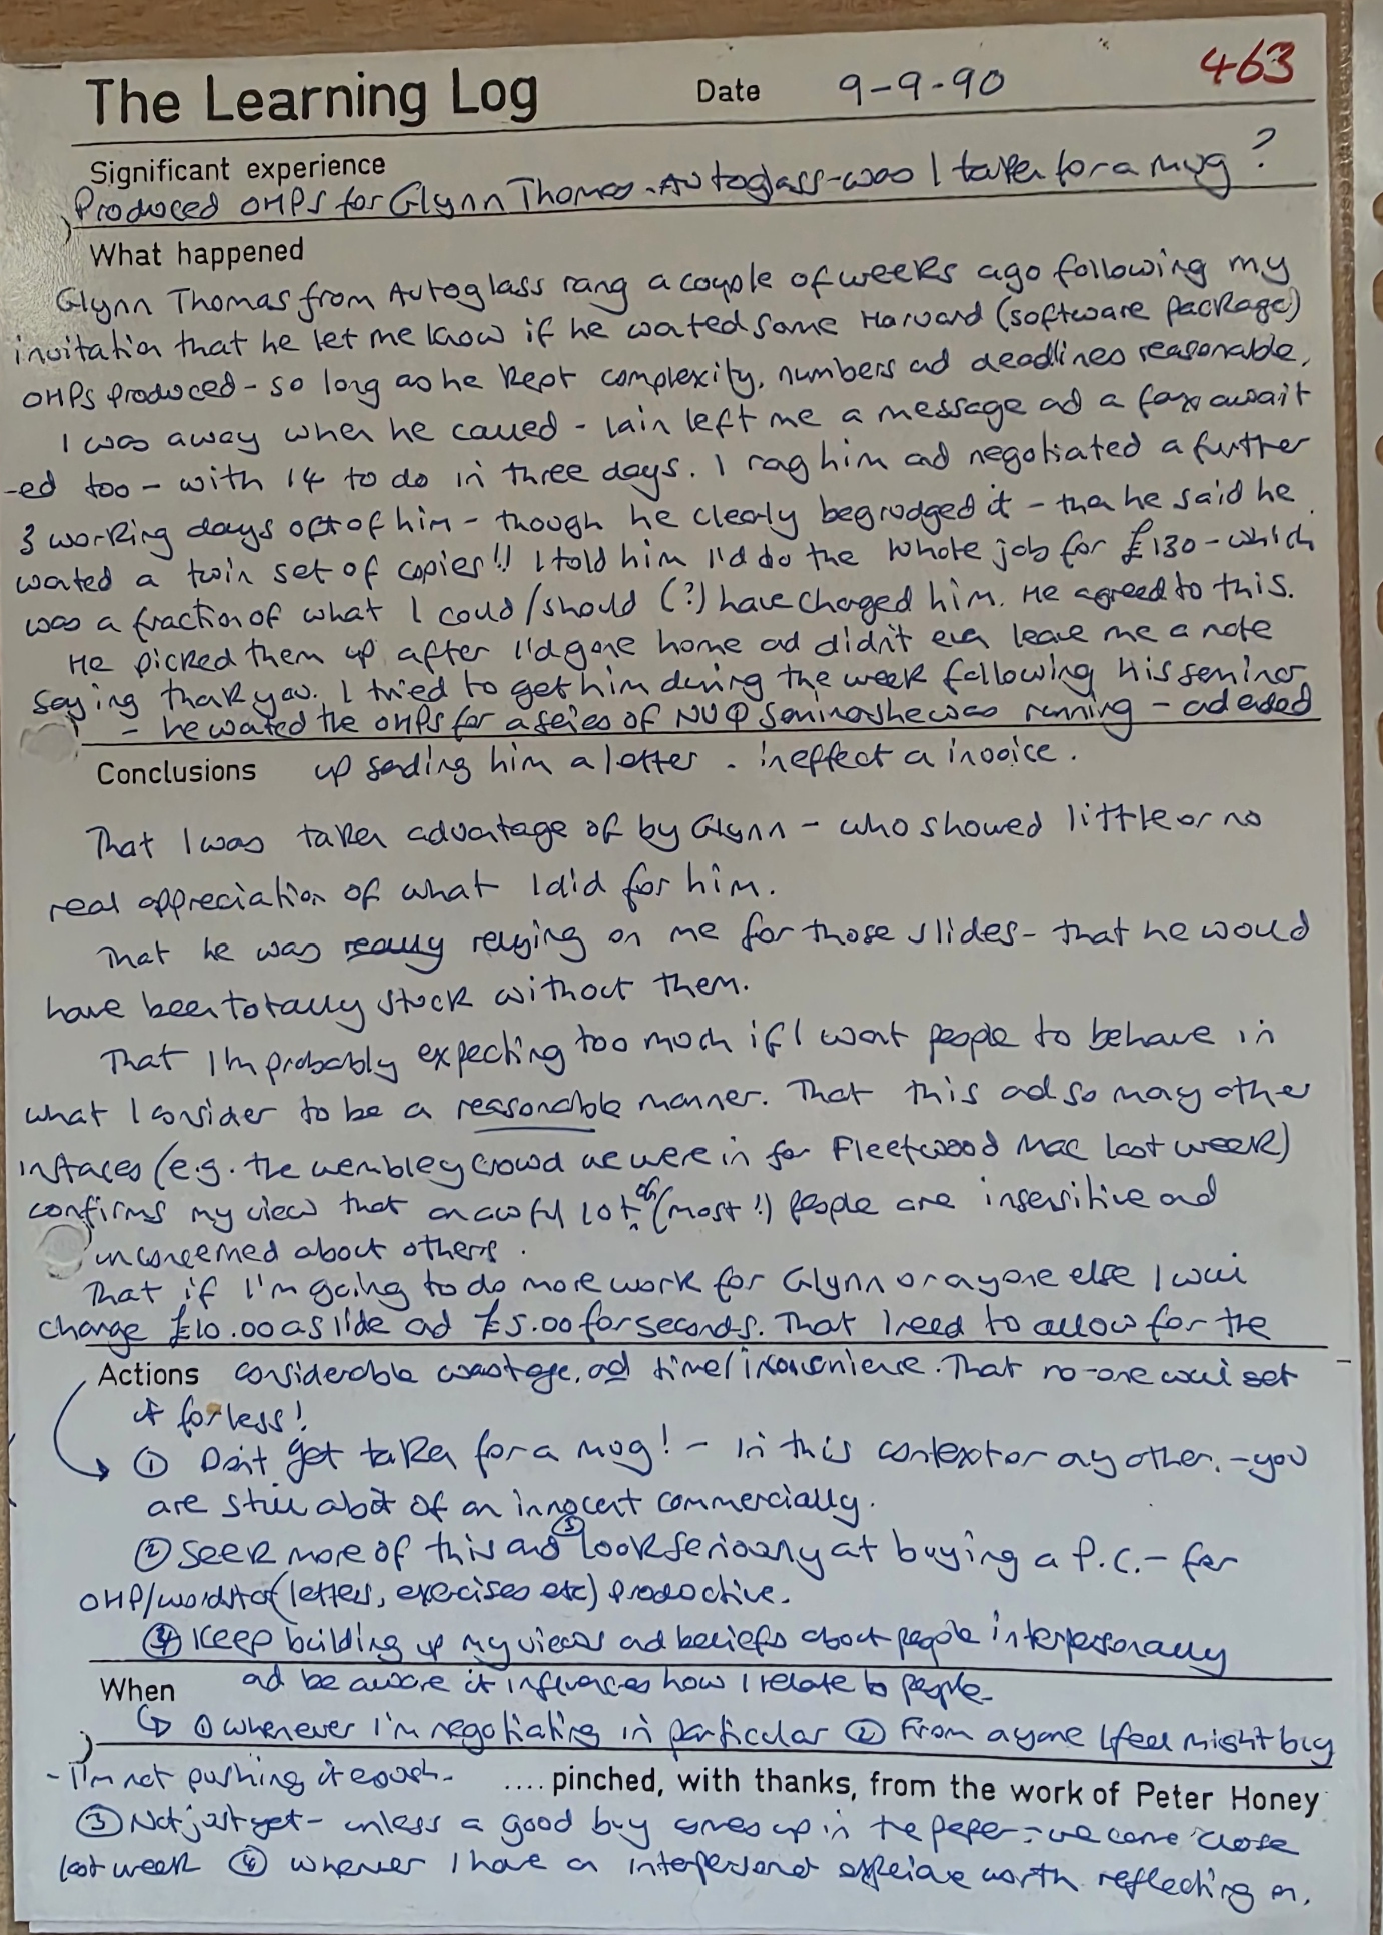 463
The Learning Log Date 9-9-90
Significant experience
Produced OHPs for Glynn Thomas - Autoglass - was I taken for a mug?
What happened
Glynn Thomas from Autoglass rang a couple of weeks ago following my
invitation that he let me know if he wated some Harvard (software package)
OHPs produced - so long as he kept complexity, numbers ad deadlines reasonable.
I was away when he called - Iain left me a message ad a fax await
-ed too - with 14 to do in three days. I rag him ad negotiated a further
3 working days out of him - though he clearly begrudged it - then he said he
wated a twin set of copies!! I told him I'd do the whole job for £130 - which
was a fraction of what I could/should (?) have charged him. He agreed to this.
He picked them up after I'd gone home ad didn't even leave me a note
saying thank you. I tried to get him during the week following his seminar
- he wated the OHPs for a series of NVQ seminars he was running - ad ended
Conclusions up sending him a letter - in effect a invoice.
That I was taken advantage of by Glynn - who showed little or no
real appreciation of what I did for him.
That he was really relying on me for those slides - that he would
have been totally stuck without them.
That I'm probably expecting too much if I want people to behave in
what I consider to be a reasonable manner. That this ad so may other
instaces (e.g. the Wembley crowd we were in for Fleetwood Mac last week)
confirms my view that an awful lot of (most!) people are insensitive and
unconcerned about others.
That if I'm going to do more work for Glynn or ayone else I will
charge £10.00 a slide ad £5.00 for seconds. That I need to allow for the
Actions considerable wastage, ad time/inconvenience. That no-one will get
it for less!
① Don't get taken for a mug! - In this context or ay other. - you
are still a bit of an innocent commercially.
② Seek more of this and ③ look seriously at buying a P.C. - for
OHP/ (letters, exercises etc) productive.
④ Keep building up my views ad beliefs about people interpersonally
When ad be aware it influences how I relate to people.
① Whenever I'm negotiating in particular ② From ayone I feel might buy
- I'm not pushing it enough.
.... pinched, with thanks, from the work of Peter Honey
③ Not just yet - unless a good buy comes up in the paper - we came close
last week ④ Whenever I have an interpersonal experience worth reflecting on.